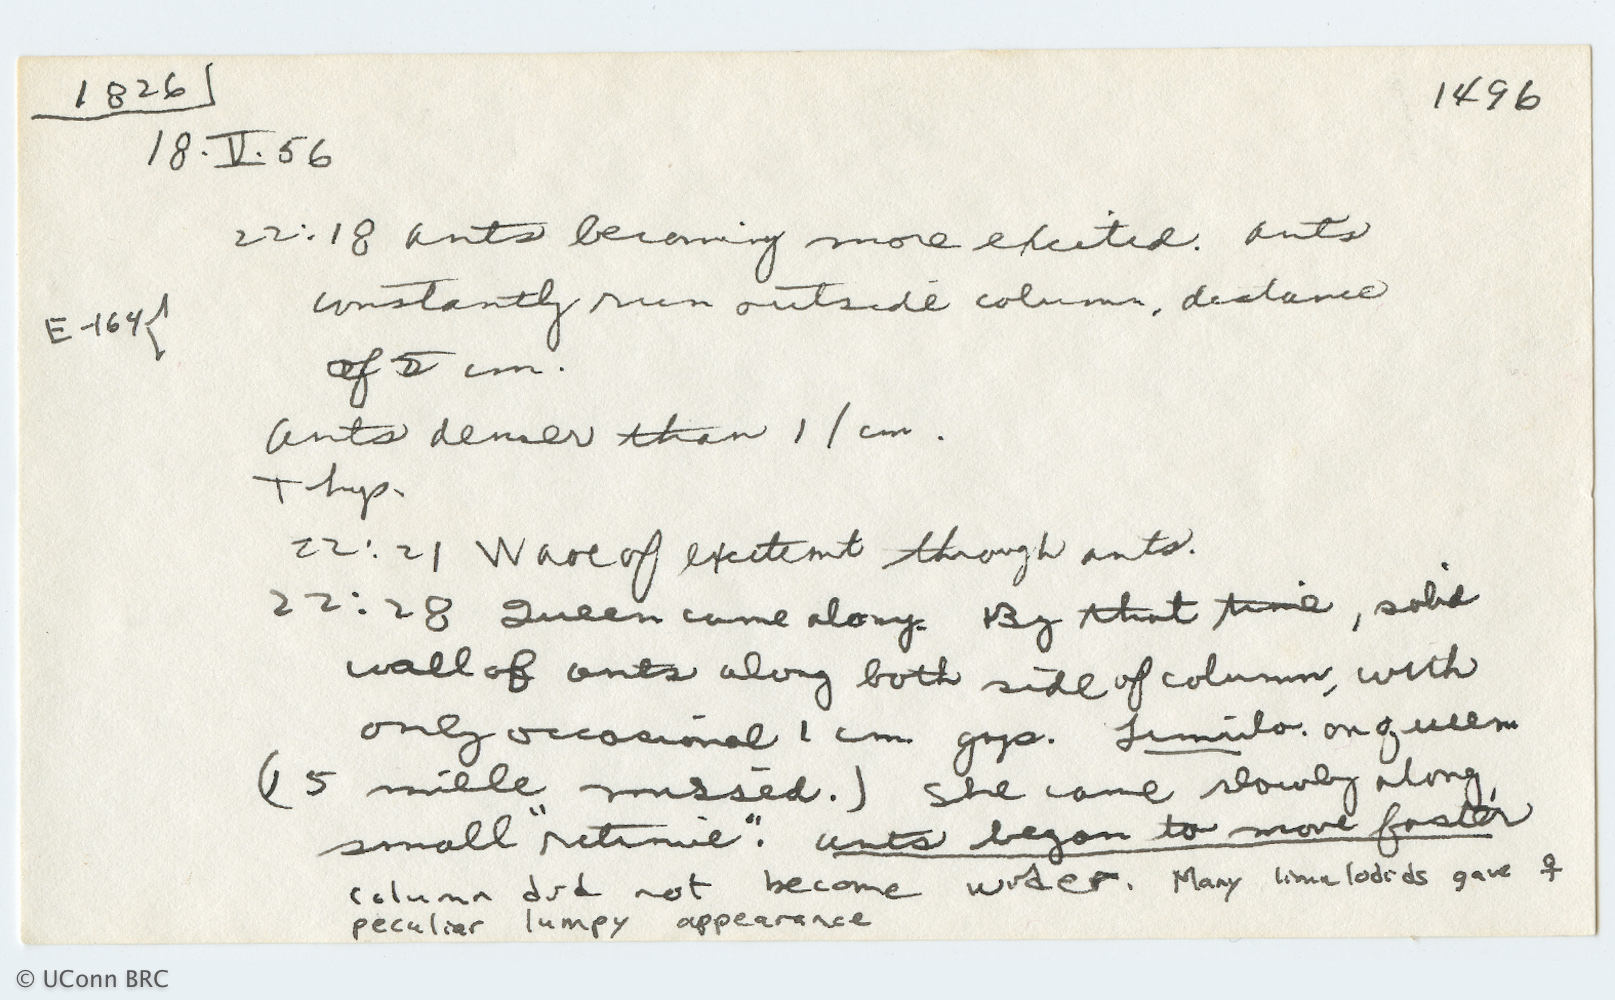 1826
1496
18.V.56
22:18 ants becoming more excited. Ants
constantly run outside column, distance
E-164{
of 5 cm.
Ants denser than 1/cm.
T hyp.
22:21 Wave of excitemt through ants.
22:28 Queen came along. By that time, solid
wall of ants along both side of column, with
only occasional 1 cm gaps. Limulo. on queen
(5 mille missed.) She came slowly along,
small "retinue". Ants began to move faster
column did not become wider. Many limulodids gave ♀
peculiar lumpy appearance
© UConn BRC